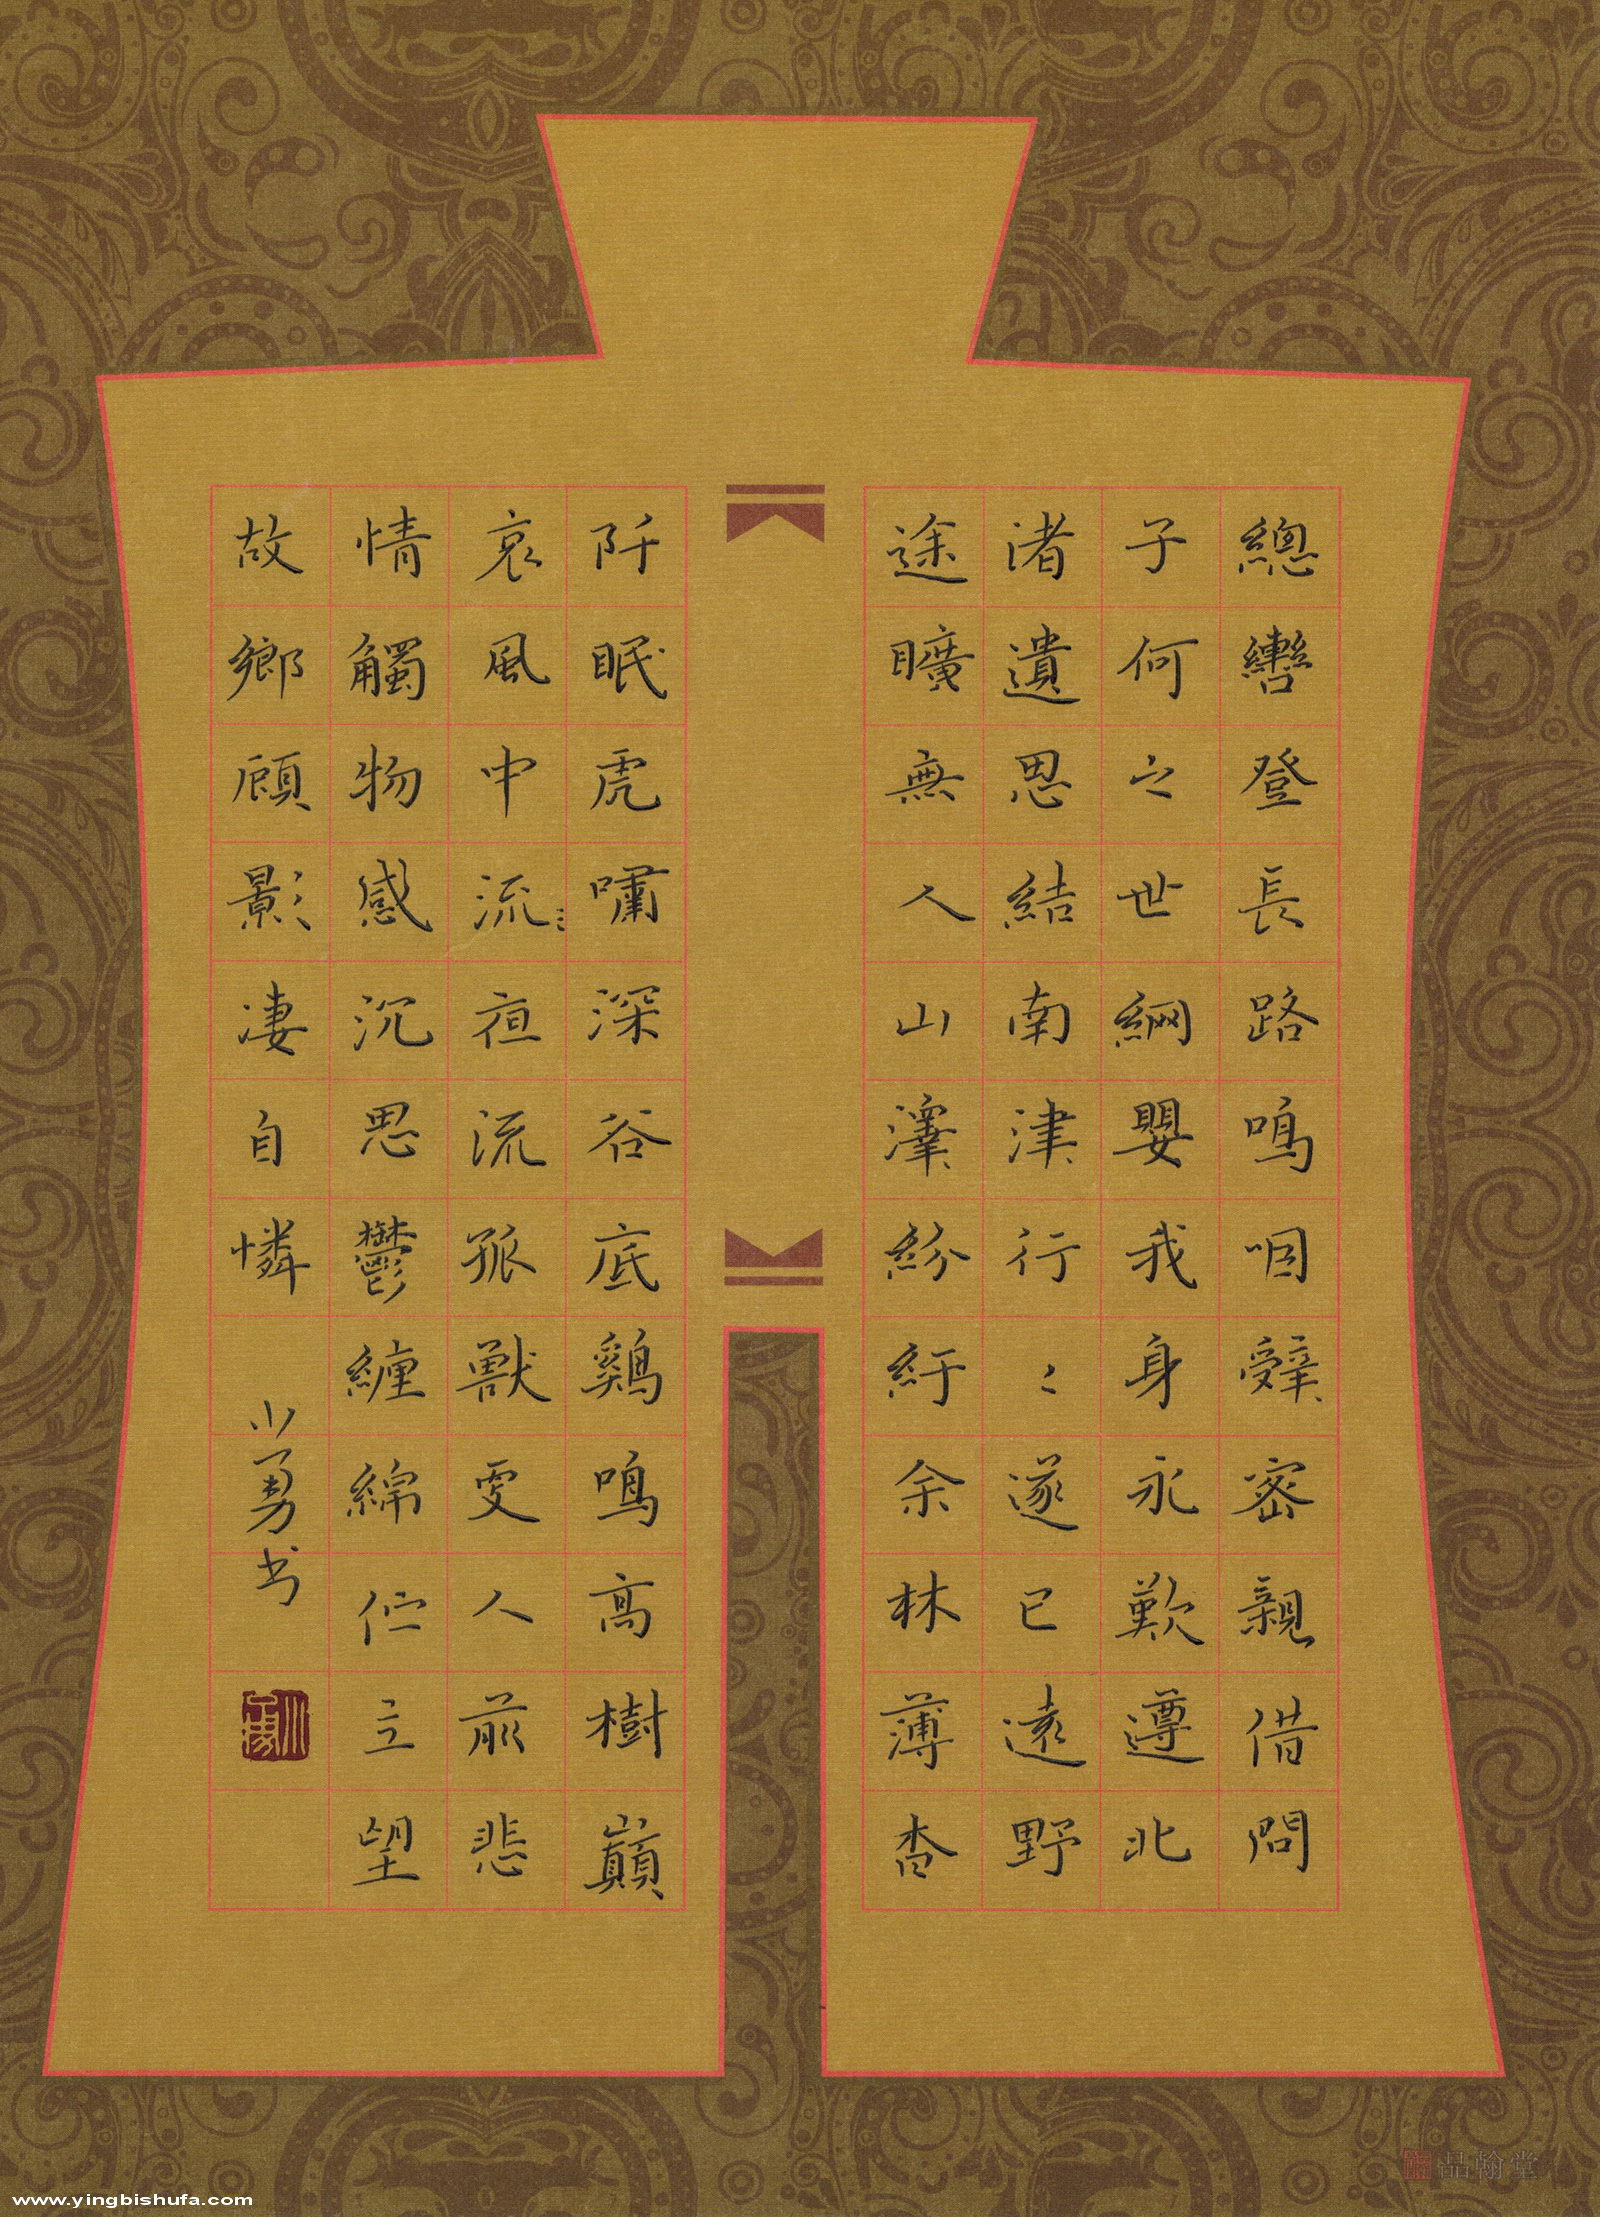 總轡登長路鳴咽辤密親借問
子何之世網嬰我身永歎遵北
渚遺思結南津行〻遂已遠野
途曠無人山澤紛紆余林薄杳
阡眠虎嘯深谷底鷄鳴高樹巔
哀風中流夜流孤獸更人前悲
情觸物感沉思鬱纏綿佇立望
故鄉顧影淒自憐
小勇书
品翰堂
www.yingbishufa.com